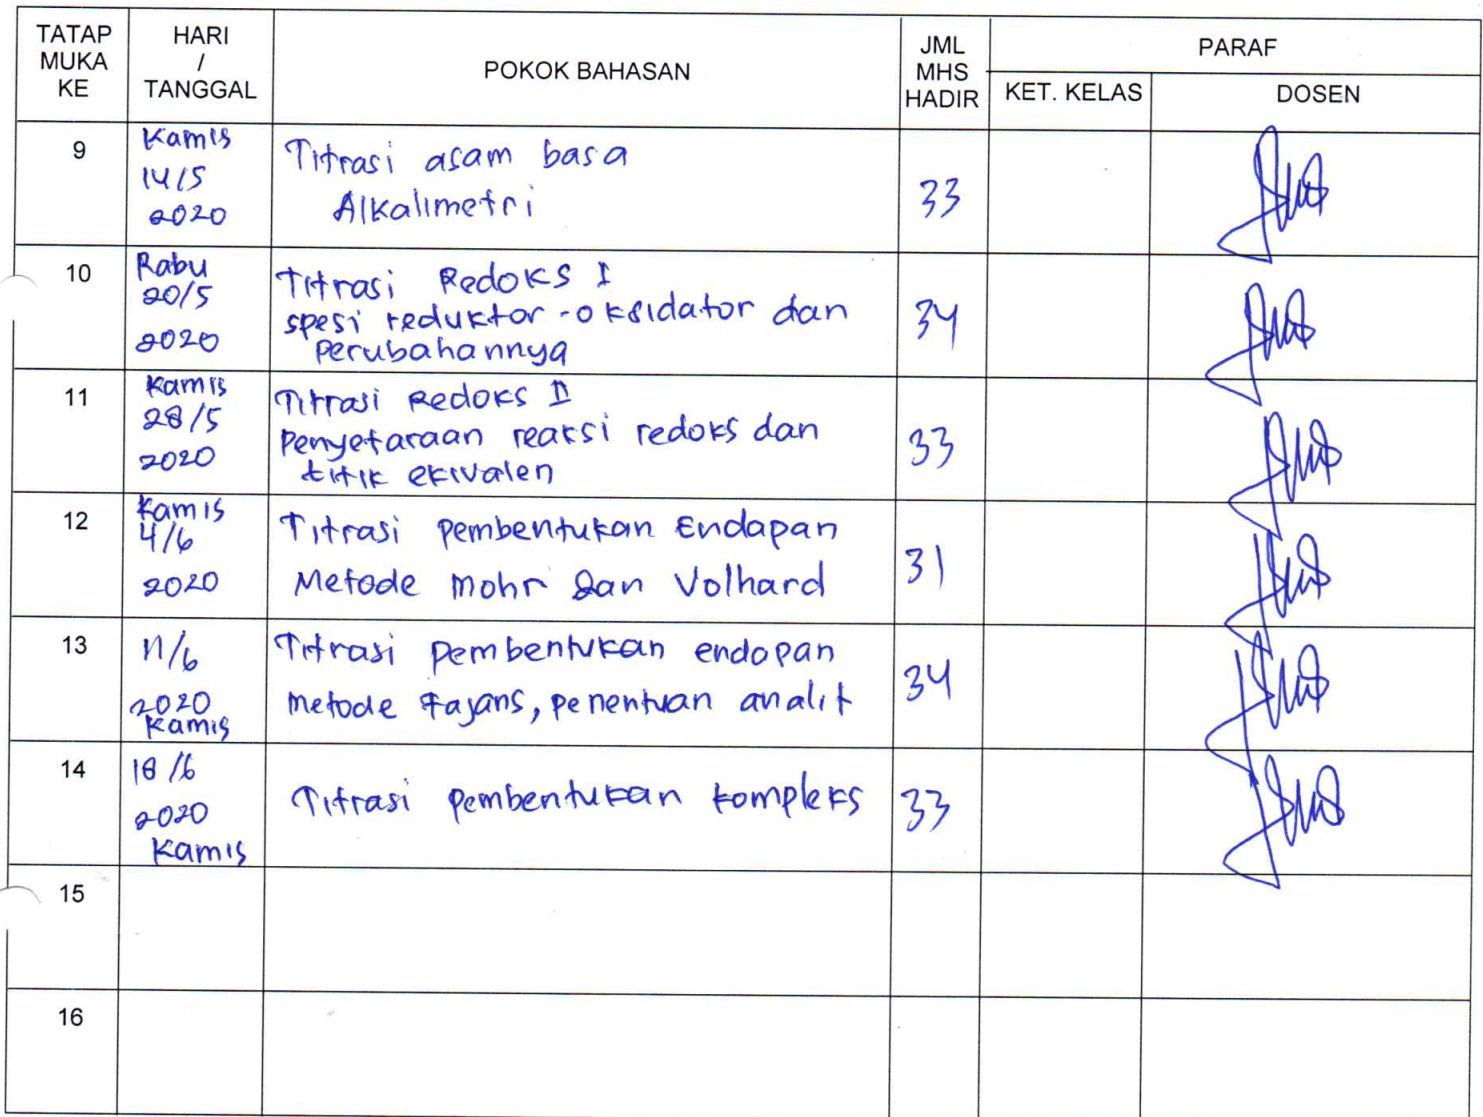 TATAP
MUKA
KE
HARI
/
TANGGAL
POKOK BAHASAN
JML
MHS
HADIR
PARAF
KET. KELAS
DOSEN
9
Kamis
14/5
2020
Titrasi asam basa
Alkalimetri
33
10
Rabu
20/5
2020
Titrasi Redoks I
spesi reduktor - oksidator dan
perubahannya
34
11
Kamis
28/5
2020
Titrasi Redoks II
Penyetaraan reaksi redoks dan
titik ekivalen
33
12
Kamis
4/6
2020
Titrasi pembentukan Endapan
Metode Mohr dan Volhard
31
13
11/6
2020
Kamis
Titrasi pembentukan endapan
metode Fajans, penentuan analit
34
14
18/6
2020
Kamis
Titrasi pembentukan kompleks
33
15
16